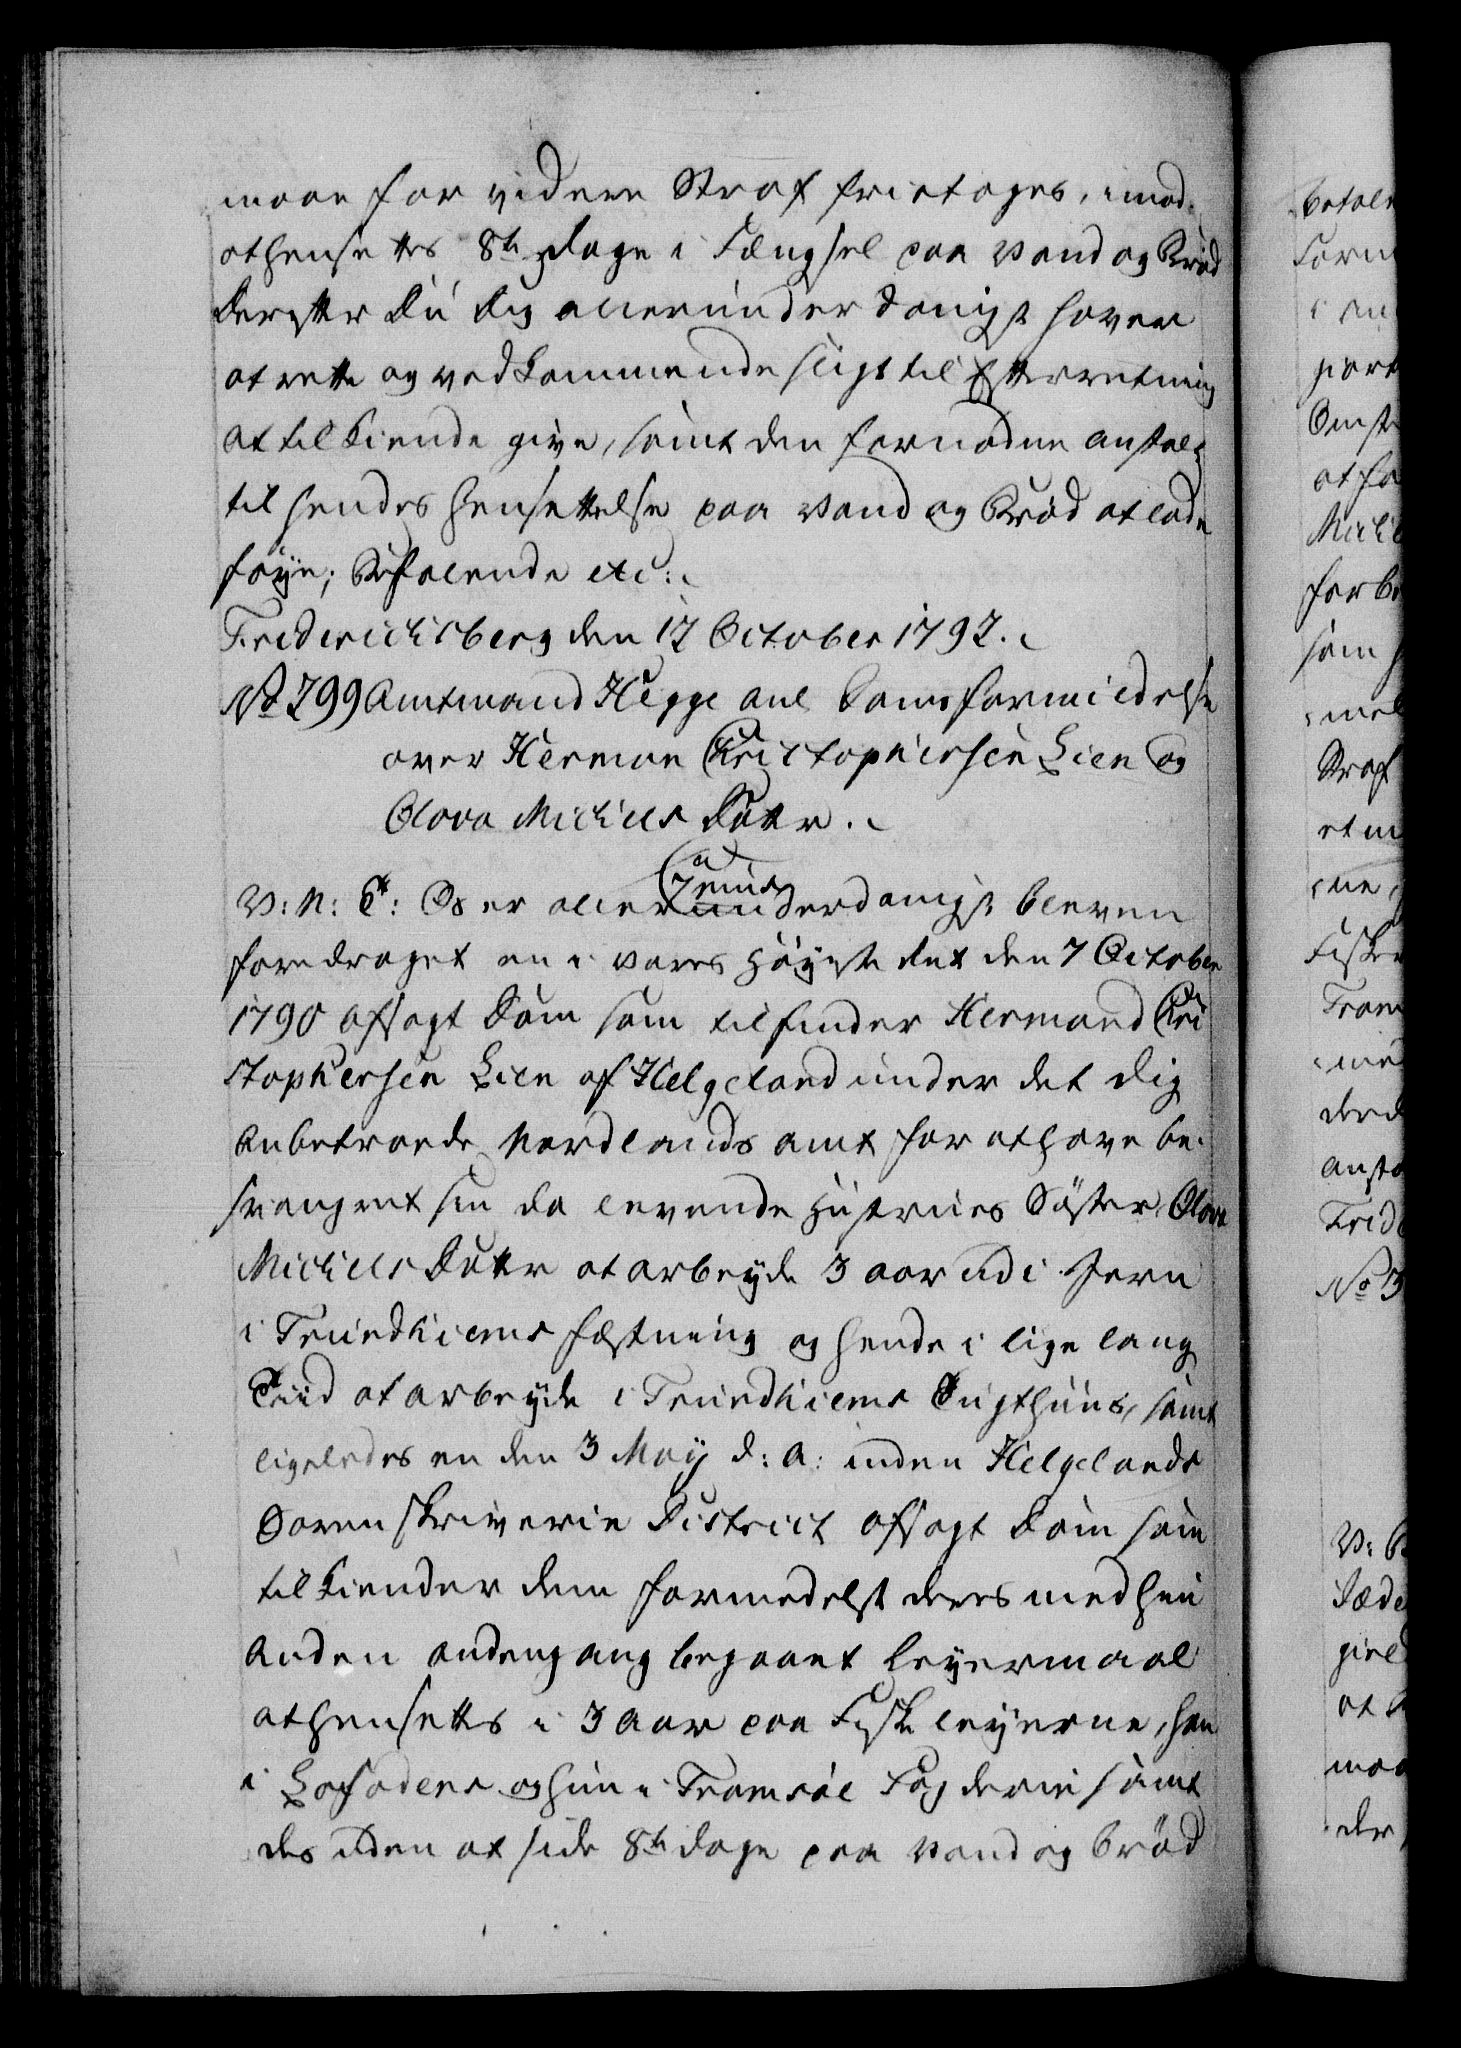 maae for videre Straf fritages, imod
at hensettes 8te Dage i Fængsel paa Vand og Brød
derefter Du dig allerunderdanigst haver
at rette og vedkommende sligt til Efterretning
at tilkiende give, samt den fornødne Anstalt
til hendes hensettelse paa Vand og Brød at lade
føye; Befalende etc:
Friderichsberg den 12 October 1792.
No 799 Amtmand Hegge anl Doms formildelse
over Herman Christophersen Lien og
Olava Michels Datter.
V: N: T: Os er allerunderdanigst bleven
foredraget en i vores Høyeste Ret den 7 October
1790 afsagt Dom som tilfinder Hermand Chri
stophersen Lien af Helgeland under det dig
Anbetroede Nordlands Amt for at have be-
svangret sin da levende Hustrues Søster Olava
Michels Datter at arbeyde 3 aar udi Jern
i Trundhiems fæstning og hende i lige lang
Tiid at arbeyde i Trundhiems Tugthuus, samt
ligeledes en den 3 May d: A: inden Helgelands
Sorenskriverie District afsagt Dom som
tilkiender dem formedelst deres med hin
Anden andengang begaaet Leyermaal
at hensettes i 3 Aar paa Fiskeleyerne, han
i Lofodens og hun i Tromsøe Fogderie samt
des uden at side 8te dage paa Vand og brød